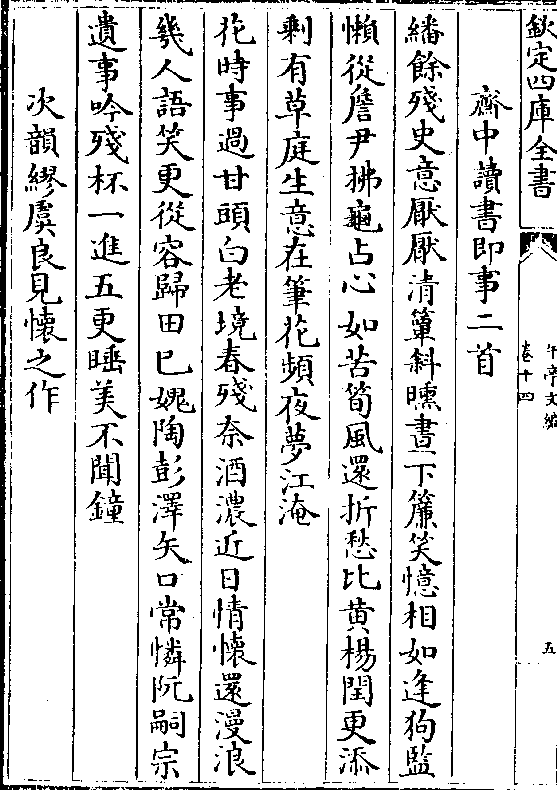 欽定四庫全書
午亭文編
卷十四
五
齋中讀書即事二首
繙餘殘史意厭厭清簟斜曛晝下簾笑憶相如逢狗監
懶從詹尹拂龜占心如苦筍風還折愁比黄楊閏更添
剩有草庭生意在筆花頻夜夢江淹
花時事過甘頭白老境春殘奈酒濃近日情懷還漫浪
幾人語笑更從容歸田已媿陶彭澤矢口常憐阮嗣宗
遺事吟殘杯一進五更睡美不聞鐘
次韻繆虞良見懷之作